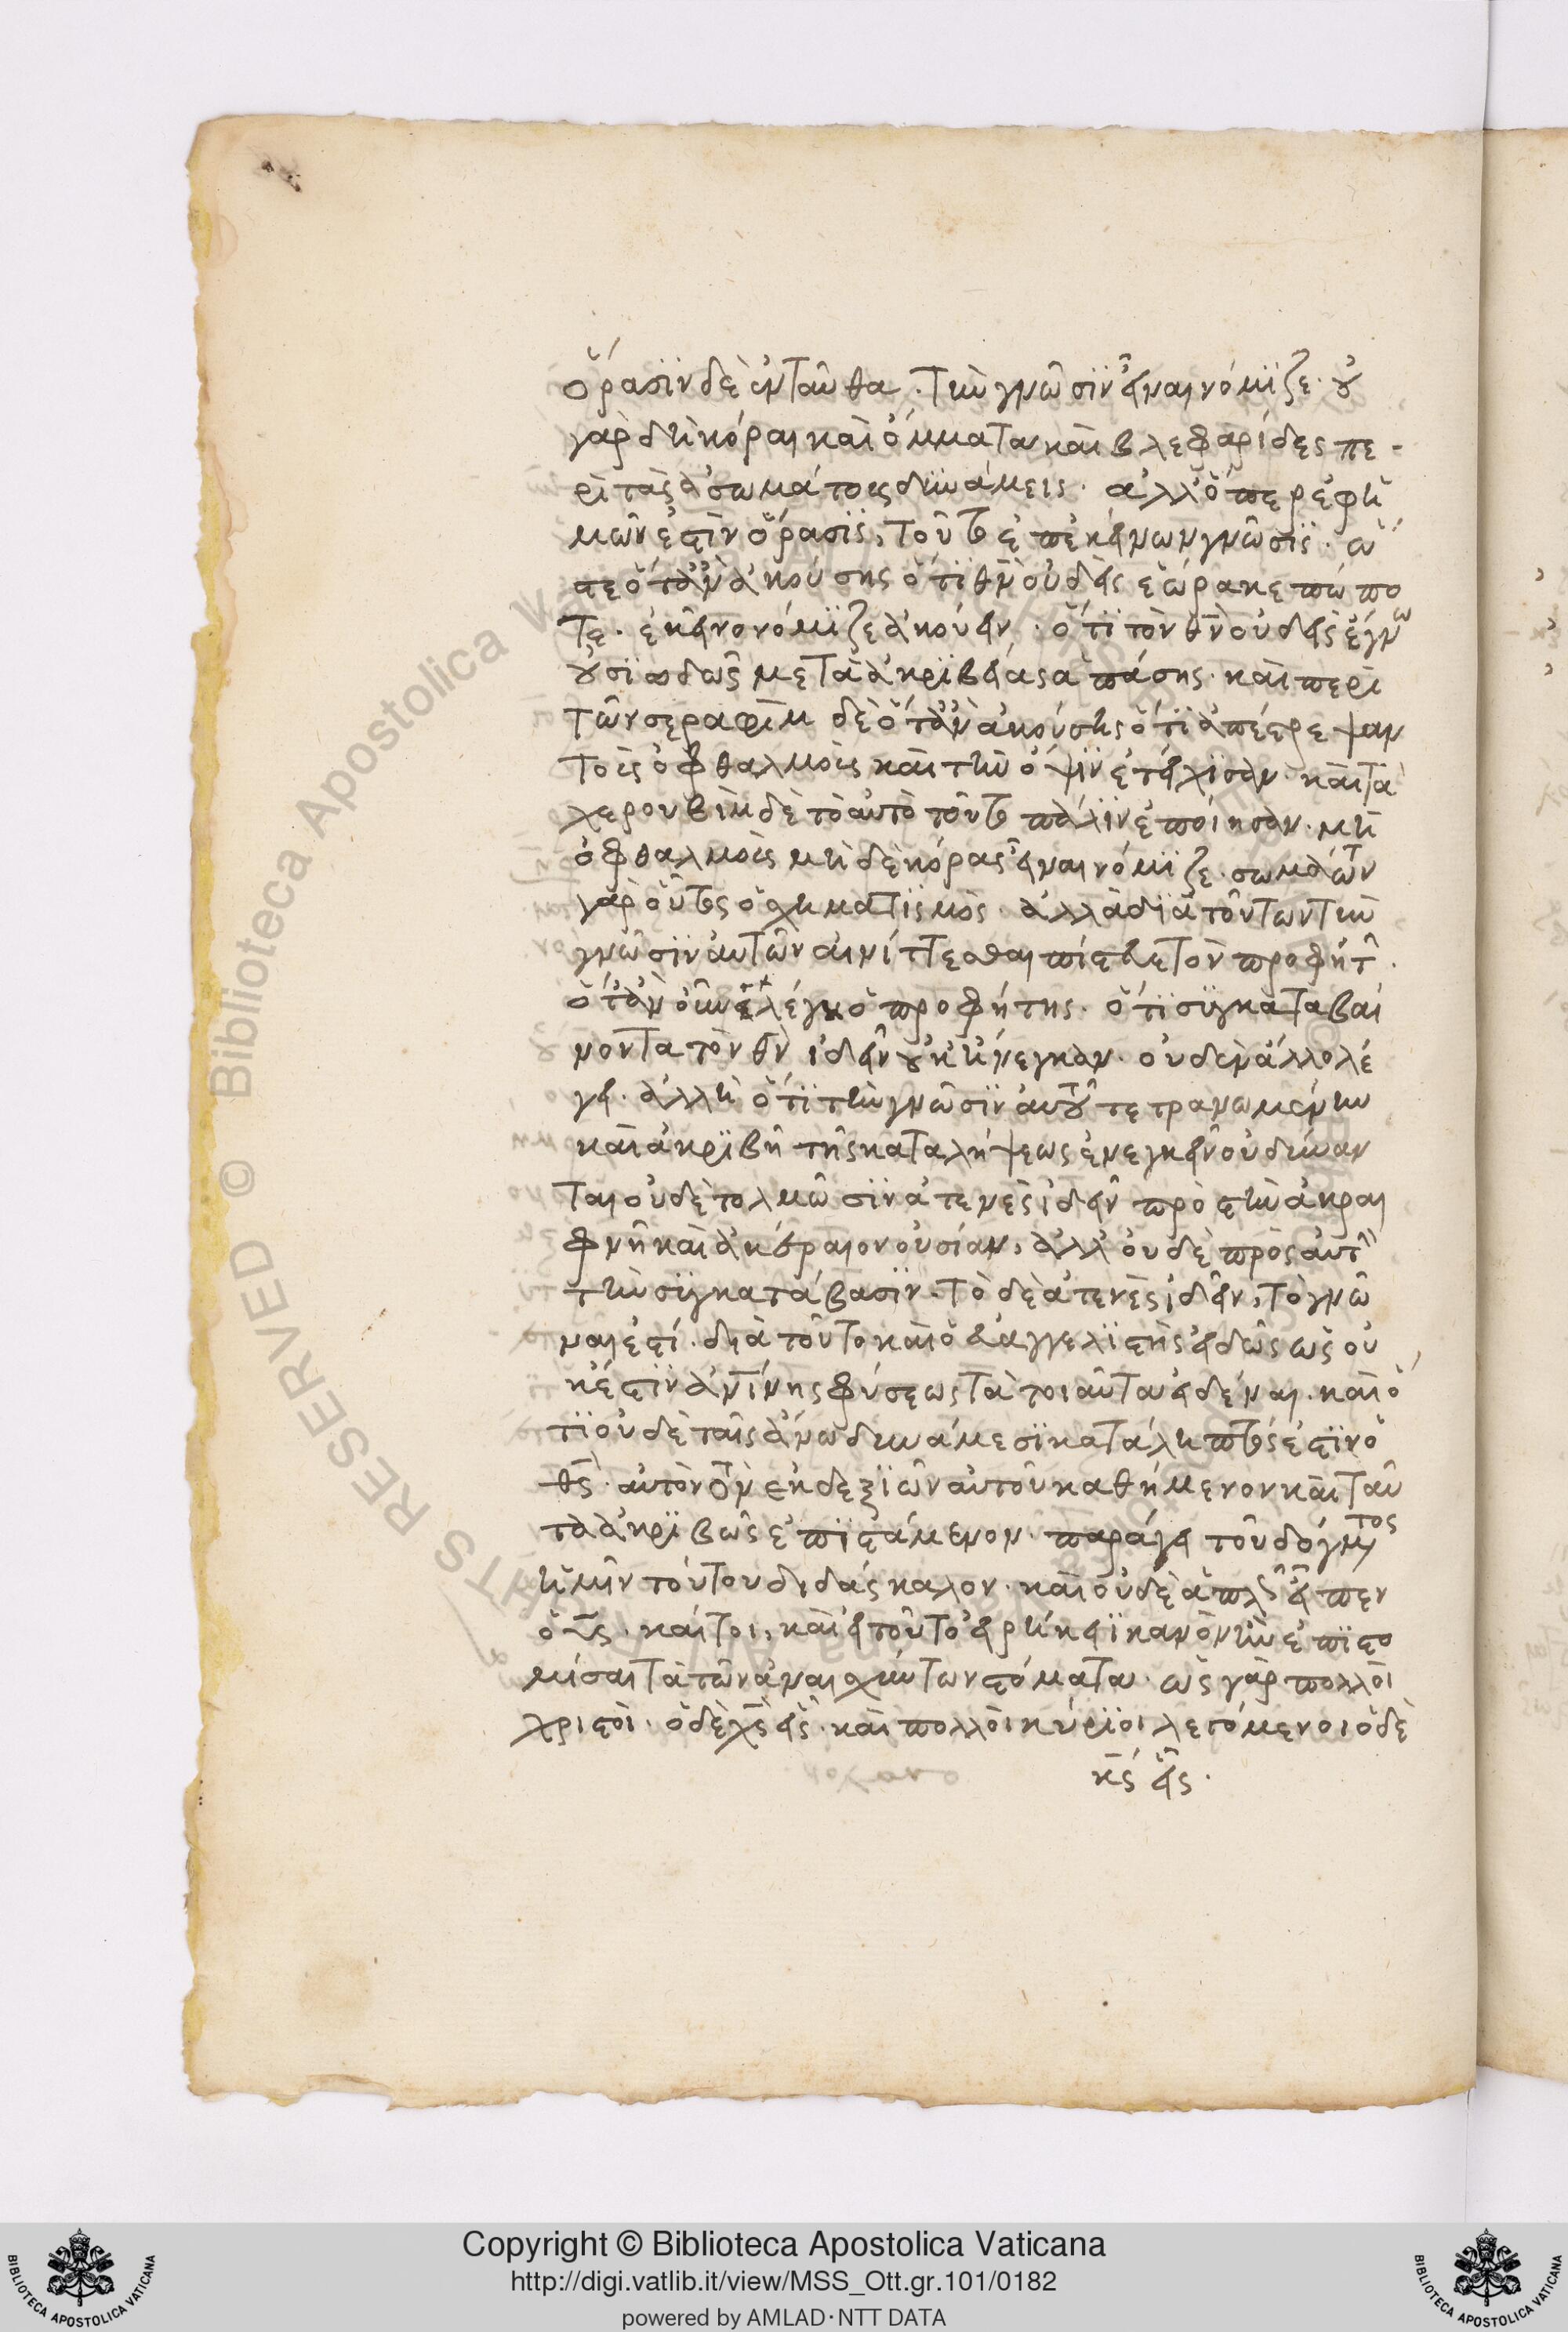 ὅρασϊν δὲ ἐνταῦθα. τὴν γνῶσϊν εἶναι νόμϊζε. οὐ
γὰρ δὴ κόραι καὶ ὄμματα καὶ βλεφαρίδες πε-
ρὶ τὰς ἀσωμάτοις δυνάμεις. ἀλλ' ὅπερ ἐφ' ἡ
μῶν ἐστὶν ὅρασϊς, τοῦτο ἐπ' ἐκείνων γνῶσϊς. ὥ
στε ὅταν ἀκούσης ὅτϊ θν̄ οὐδεὶς ἑώρακε πώπο
τε. ἐκεῖνο νόμϊζε ἀκούειν. ὅτϊ τὸν θν̄ οὐδεὶς ἔγνω
οὐσϊωδῶς μετὰ ἀκρϊβείας ἁπάσης. καὶ περὶ
τῶν σεραφὶμ δὲ ὅταν ἀκούσης ὅτϊ ἀπέστρεψαν
τοῖς ὀφθαλμοῖς καὶ τὴν ὄψϊν ἐτείχϊσαν. καὶ τὰ
χερουβὶμ δὲ τὸ αὐτὸ τοῦτο πάλϊν ἐποίησαν. μὴ
ὀφθαλμοῖς μὴ δὲ κόρας εἶναι νόμϊζε. σωμάτων
γὰρ οὗτος ὁ σχηματϊσμός. ἀλλὰ δϊὰ τούτων τὴν
γνῶσϊν αὐτῶν αἰνίττεσθαι πίστευε τὸν προφήτ.
ὅταν οὖν ἔλεγεν ὁ προφήτης. ὅτϊ συγκαταβαί
νοντα τὸν θν̄ ἰδεῖν οὐκ ἤνεγκαν. οὐδὲν ἄλλο λέ
γει. ἀλλ' ἢ ὅτϊ τὴν γνῶσϊν αὐτοῦ τετρανωμένην
καὶ ἀκρϊβῆ τῆς καταλήψεως ἐνεγκεῖν οὐ δύναν
ται οὐδὲ τολμῶσϊν ἀτενὲς ἰδεῖν πρὸς τὴν ἀκραι
φνῆ καὶ ἀκέραιον οὐσίαν, ἀλλ' οὐδὲ πρὸς αὐτ
τὴν συγκατάβασϊν. τὸ δὲ ἀτενὲς ἰδεῖν, τὸ γνῶ
ναι ἐστί. διὰ τοῦτο καὶ ὁ εὐαγγελϊστὴς εἰδὼς ὡς οὐ
κ ἔστϊν ἀνίνης φύσεως τὰ τοιαῦτα εἰδέναι. καὶ ὅ
τϊ οὐδὲ ταῖς ἄνω δυνάμεσϊ κατάληπτός ἐστϊν ὁ
θς̄. αὐτὸν τὸν ἐκ δεξϊῶν αὐτοῦ καθήμενον καὶ ταῦ
τα ἀκρϊβῶς ἐπϊστάμενον. παράγει τοῦ δόγματος
ἡμῖν τούτου διδάσκαλον. καὶ οὐδὲ ἁπλῶς εἶπεν
ὁ υς̄. καίτοι, καὶ εἰ τοῦτο εἰρήκει ἱκανὸν ἦν ἐπϊστο
μίσαι τὰ τῶν ἀναισχύντων στόματα. ὡς γὰρ πολλοὶ
χριστοὶ. ὁ δὲ χς̄ εἷς. καὶ πολλοὶ κύρϊοι λεγόμενοι ὁ δὲ
κς̄ εἷς.
Copyright © Biblioteca Apostolica Vaticana
http://digi.vatlib.it/view/MSS_Ott.gr.101/0182
powered by AMLAD·NTT DATA